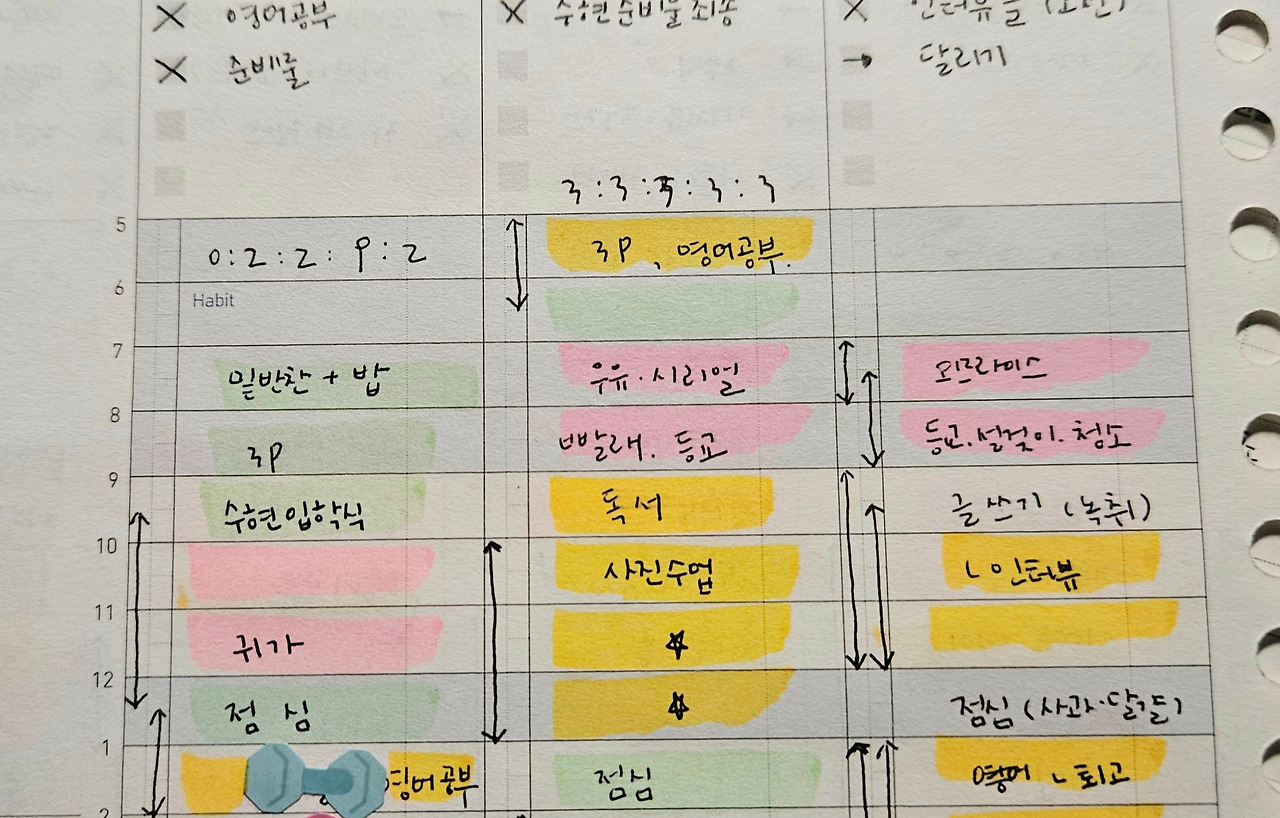 X 영어공부
X 준비물
X 수현 준비물 최종
X 인터뷰 글
→ 달리기
3:3:3:3:3
5
0:2:2:9:2
3P, 영어공부.
6
Habit
7
밑반찬 + 밥
우유·시리얼
오므라이스
8
3P
빨래. 등교
등교.설겆이.청소
9
수현입학식
독서
글쓰기 (녹취)
10
사진수업
ㄴ인터뷰
11
귀가
☆
12
점심
☆
점심 (사과·달걀)
1
영어공부
점심
영어 ㄴ퇴고
2